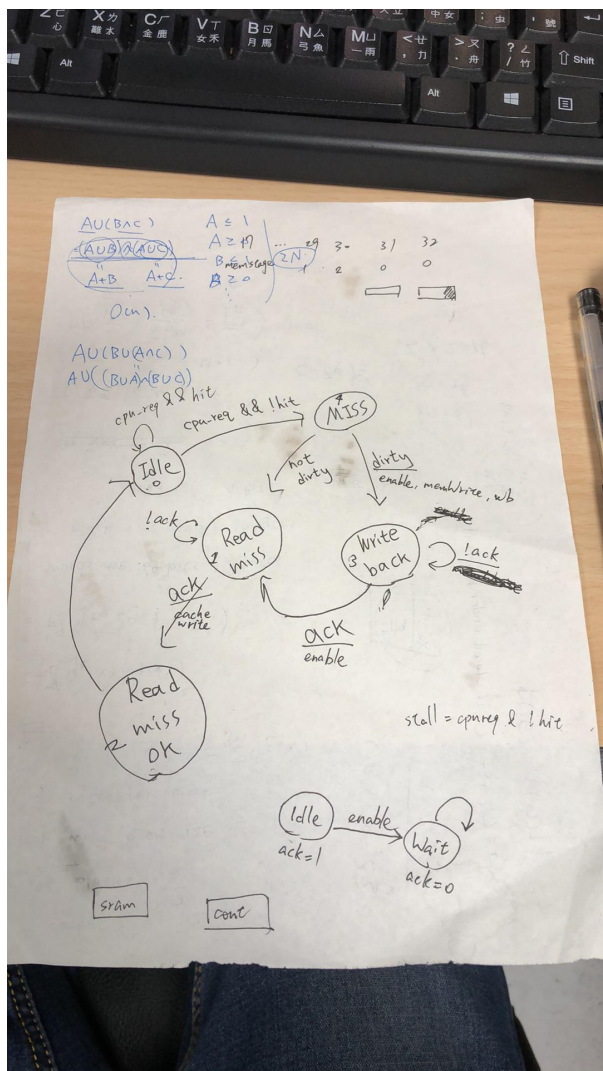 Z ㄈ 心
X ㄌ 難 木
C ㄏ 金 鹿
V ㄒ 女 禾
B ㄖ 月 馬
N ㄙ 弓 魚
M ㄩ 一 雨
< ㄝ , 力
> ㄡ . 舟
? ㄥ / 竹
⇧ Shift
Alt
Alt
AU(B∧C)
=(AUB)∧(AUC)
A+B A+C
O(n).
A ≤ 1
A ≥ 0
B ≤ 1
memstage
B ≥ 0
2N
... 29 30 31 32
0 0
AU(BU(A∧C))
AU((BUA)∧(BUC))
cpu-req && hit
cpu-req && !hit
MISS
Idle
0
not dirty
dirty
enable, memWrite, wb
!ack
1 Read miss
3 Write back
!ack
ack
cache write
ack
enable
Read
2 miss
ok
stall = cpureq & !hit
Idle
enable
Wait
ack=1
ack=0
sram
cont